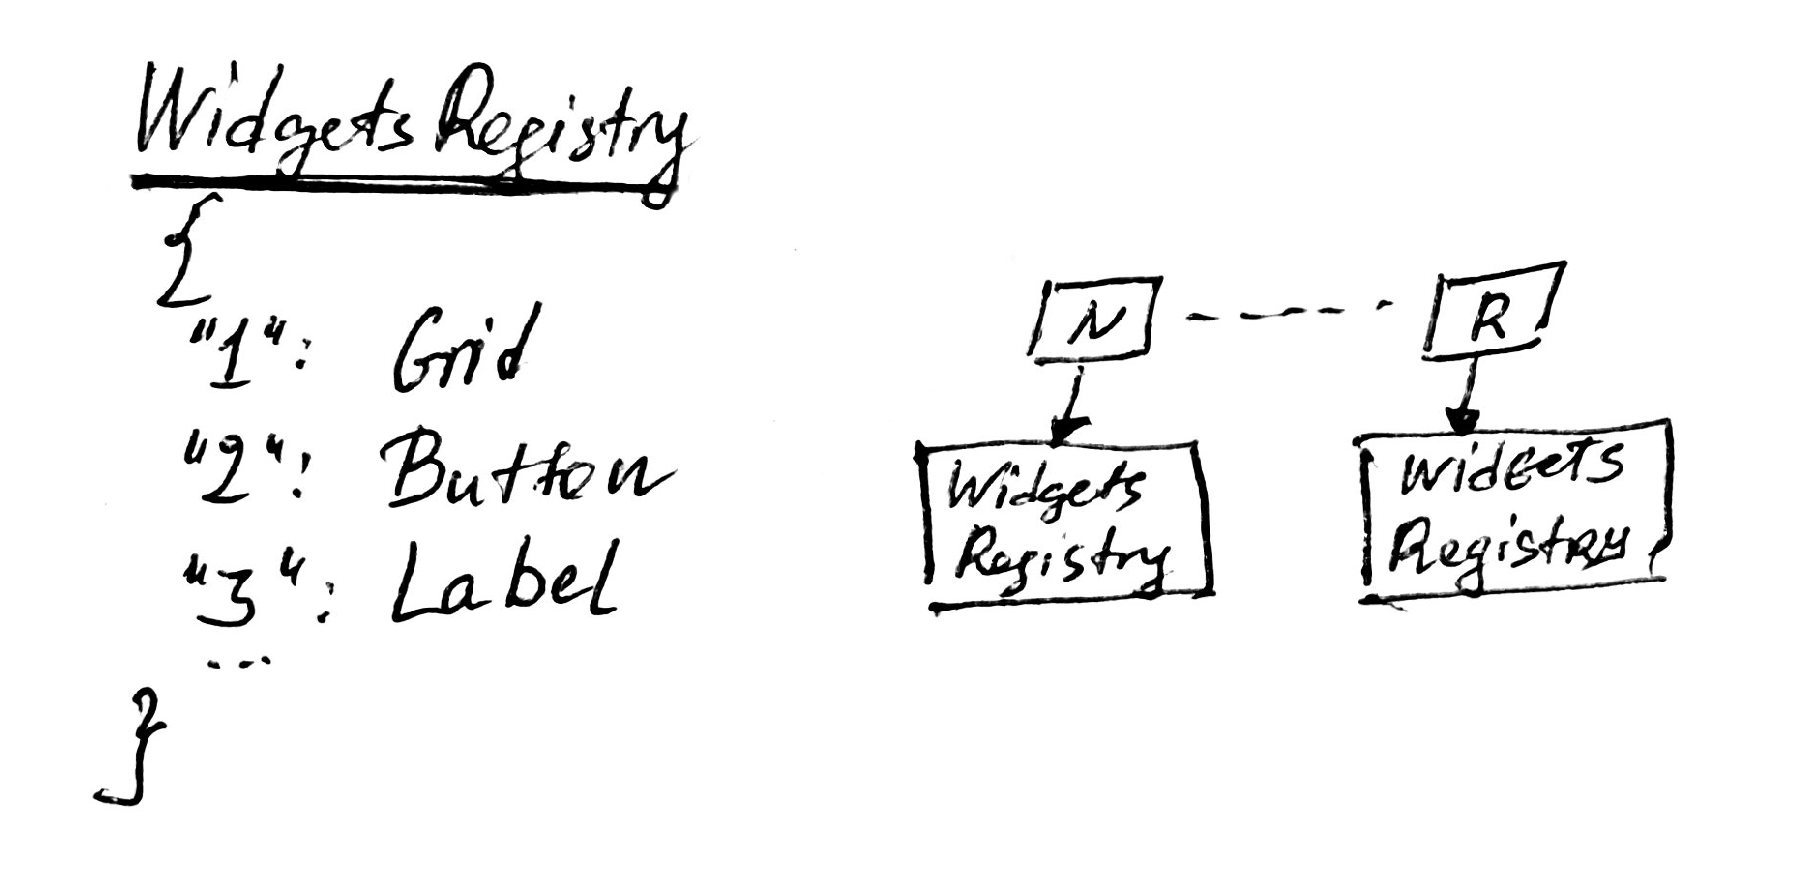 Widgets Registry
{
"1": Grid
"2": Button
"3": Label
...
}
N ----- R
Widgets
Registry
Widgets
Registry